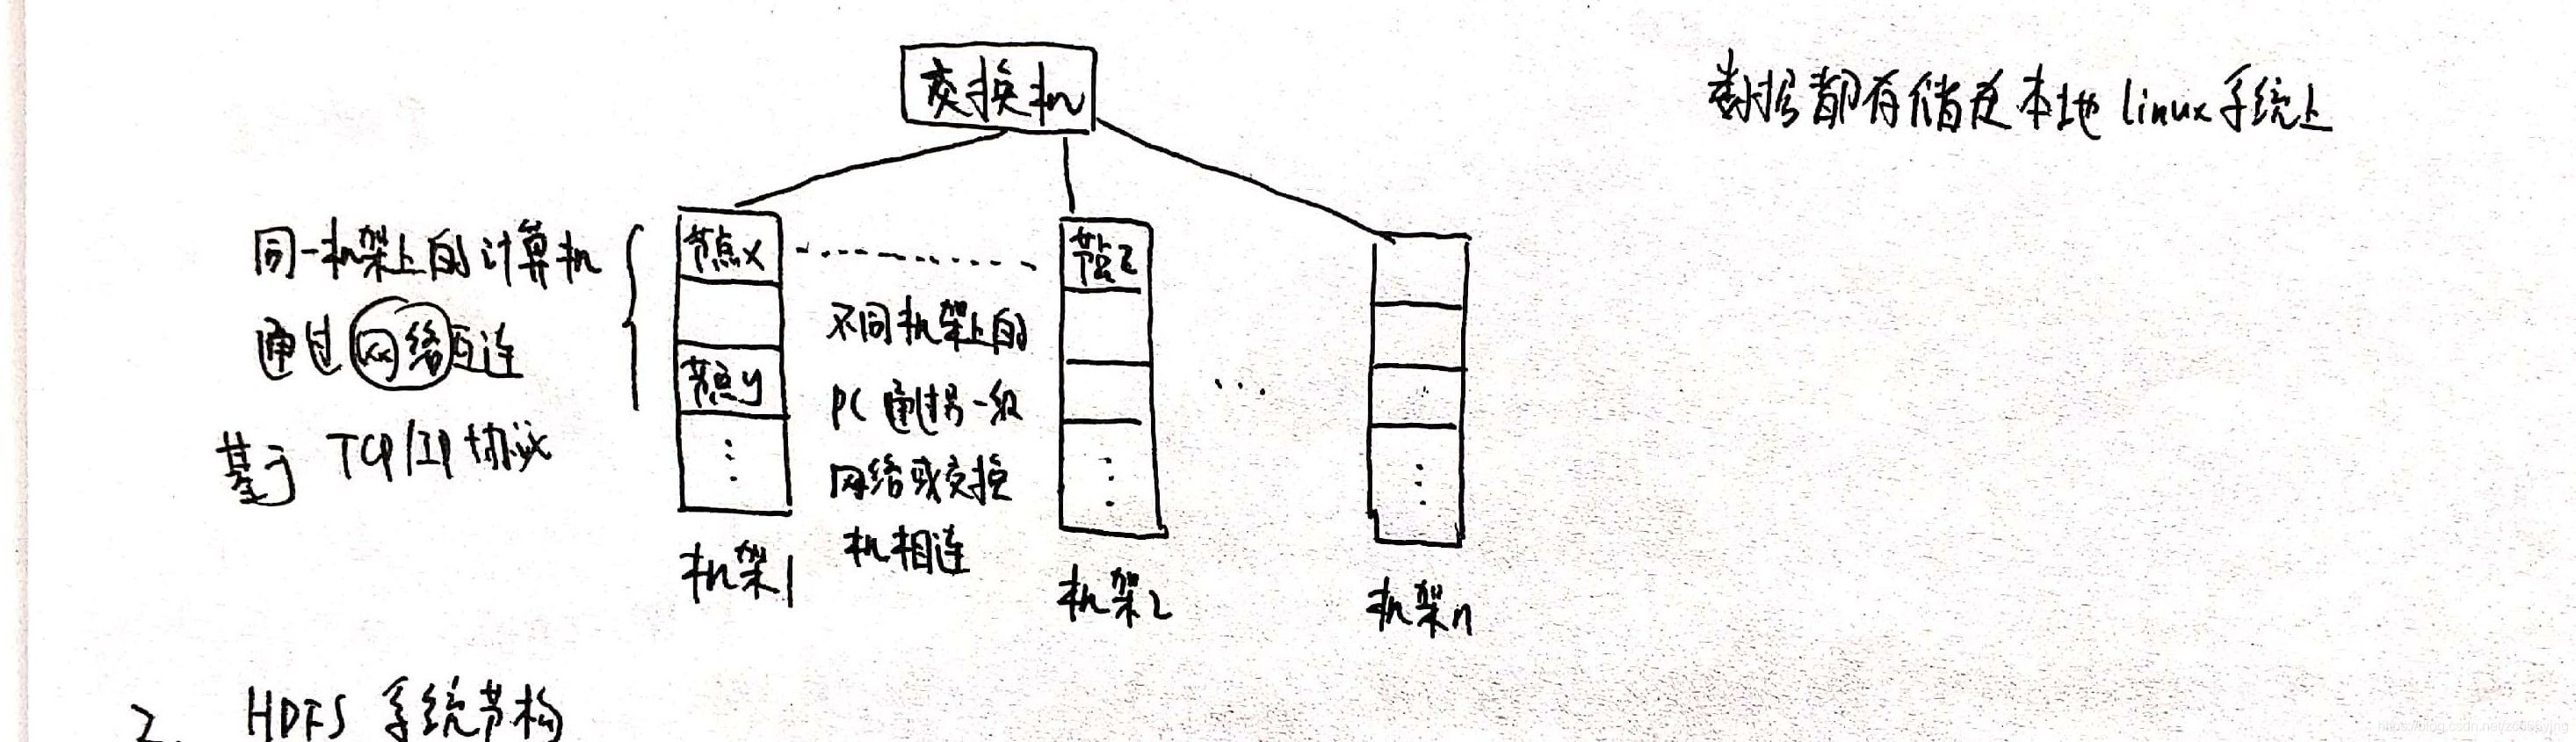 交换机
数据都存储在本地linux系统上
同一机架上的计算机
通过网络互连
基于 TCP/IP协议
节点x
节点y
机架1
不同机架上的
PC通过另一级
网络或交换
机相连
节点z
机架2
...
机架n
2. HDFS 系统节构